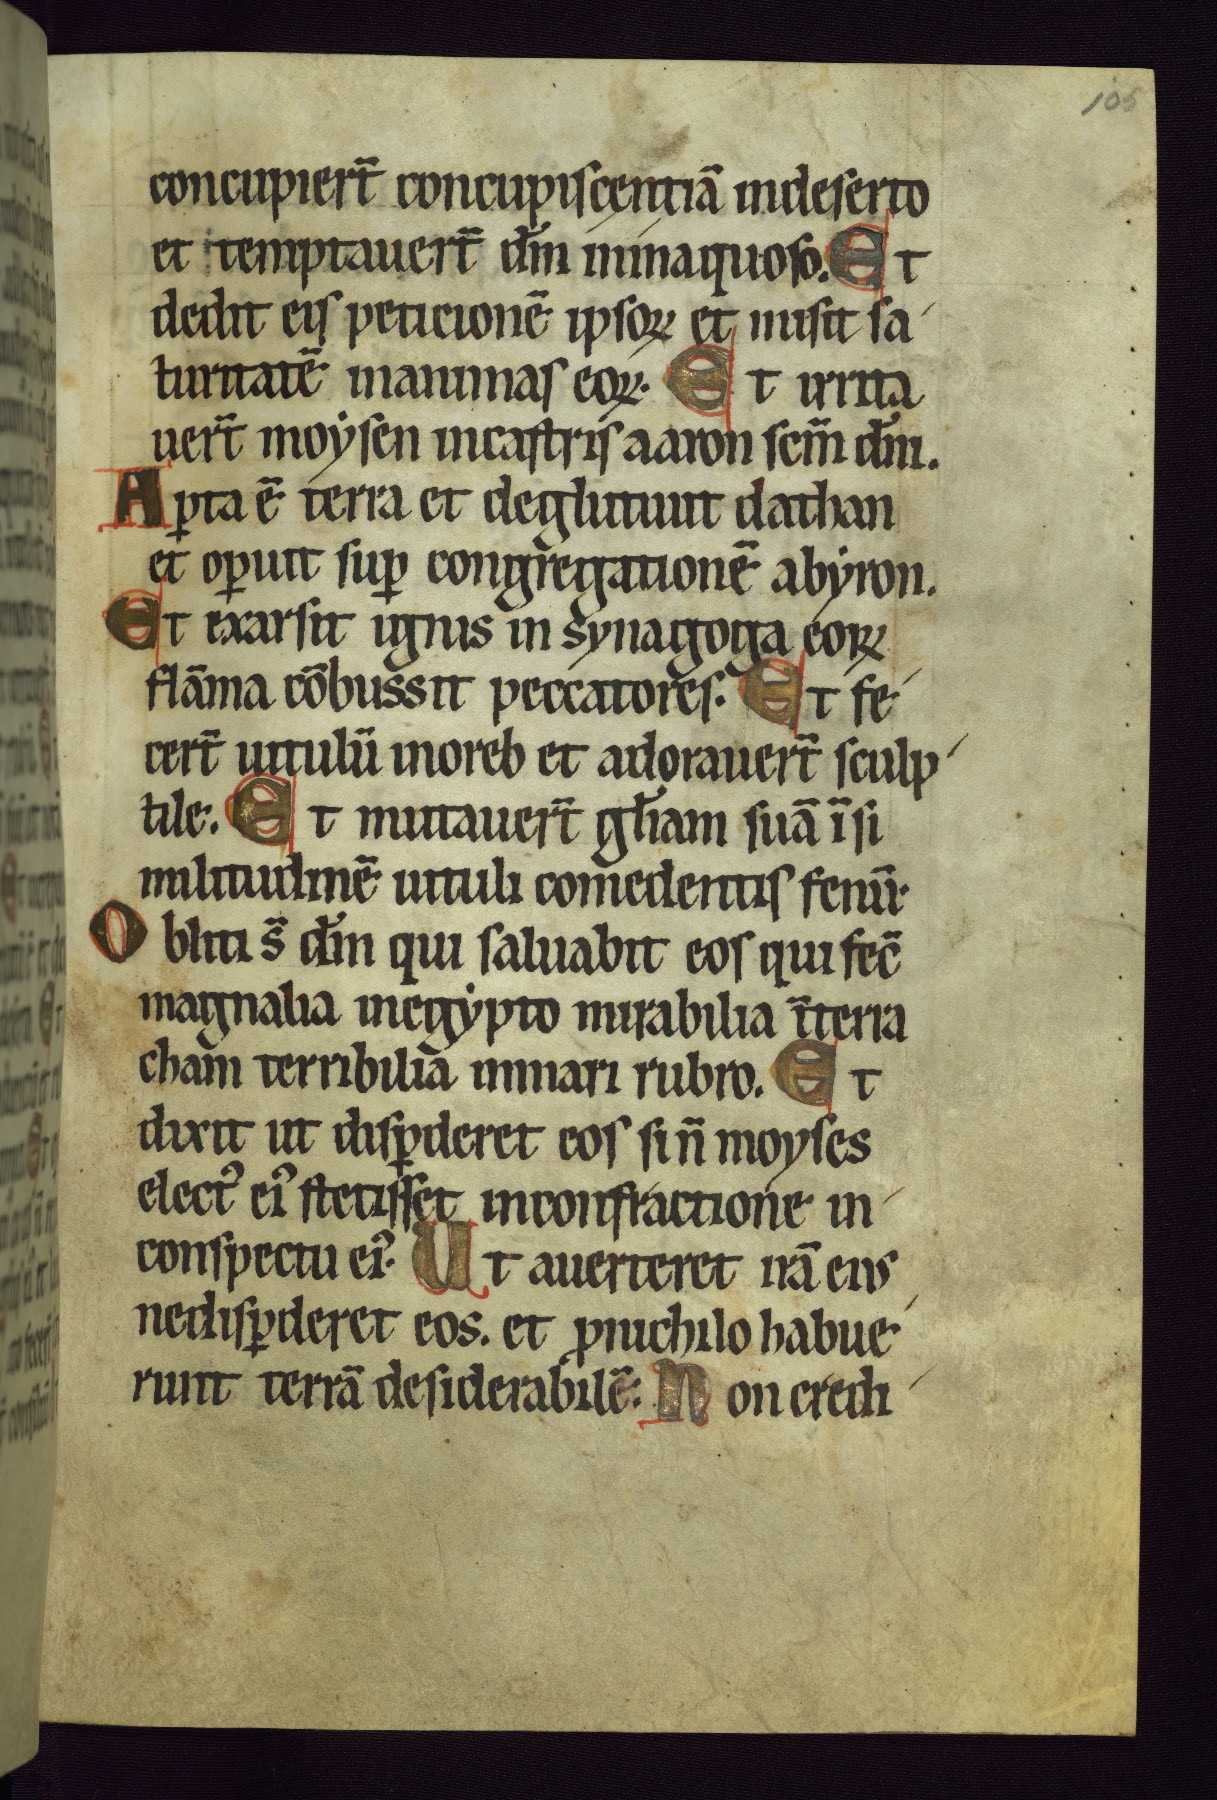 105
concupiert̄ concupiscentiā indeserto
et temptauert̄ dm̄ ininaquoso. Et
dedit eis peticionē ipsoꝝ et misit sa
turitatē inanimas eoꝝ. Et irrita
uert̄ moẏsen incastris aaron scm̄ dm̄.
Aꝑta ē terra et deglutiuit dathan
et oꝑuit suꝑ congregationē abẏron.
Et exarsit ignis in synagoga eoꝝ
flāma cōbussit peccatores. Et fe
cert̄ uitulū inoreb et adorauert̄ sculp
tile. Et mutauert̄ gl̄iam suā ī si
militudinē uituli comedentis fenū.
Obliti s̄ dm̄ qui saluabit eos qui fec̄
magnalia inegẏpto mirabilia ī terra
cham terribilia inmari rubro. Et
dixit ut disꝑderet eos si n̄ moyses
elect᾿ ei᾿ stetisset inconfractione in
conspectu ei᾿. Ut auerteret irā eius
nedisꝑderet eos. et ꝓnichilo habue
runt terrā desiderabilē. Non credi